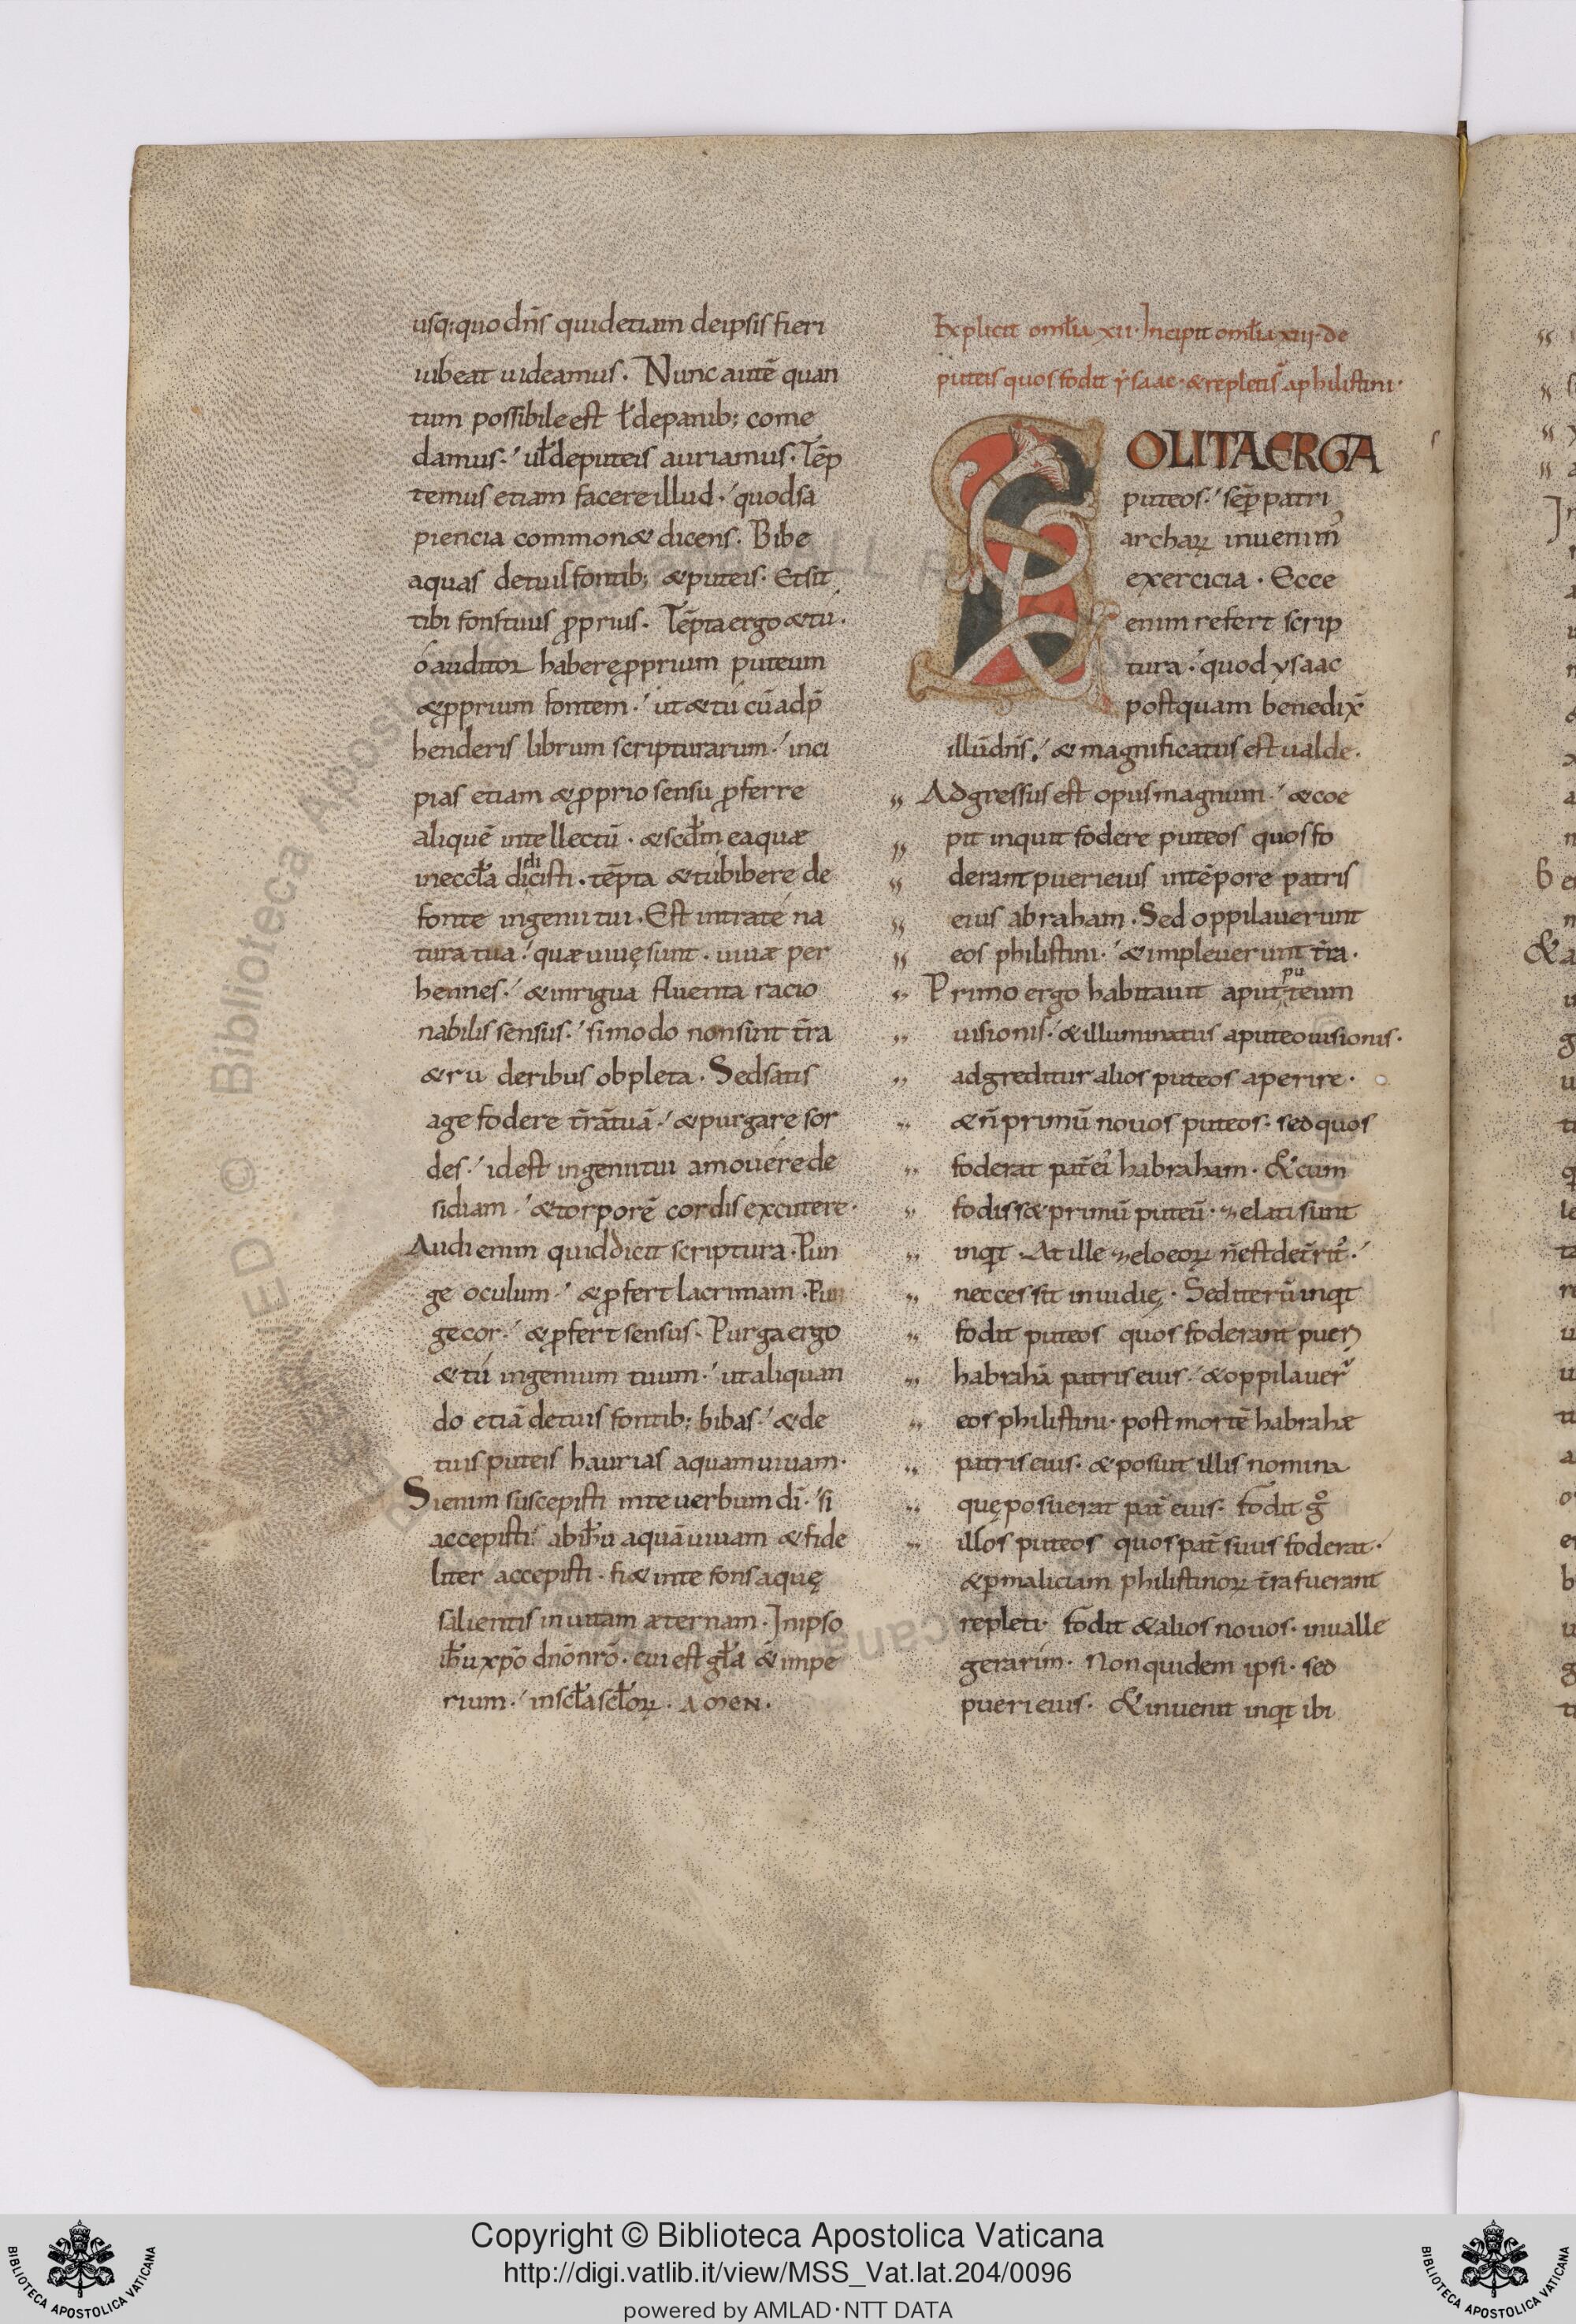 usq;quo dn̄s quid etiam de ipsis fieri
iubeat uideamus. Nunc autē quan
tum possibile est ł de panib; come
damus. uł de puteis auriamus. Tēp
temus etiam facere illud. quod sa
piencia common& dicens. Bibe
aquas de tuis fontib; & puteis. Et sit
tibi fons tuus p̄prius. Tēpta ergo & tu.
ó auditor haberę p̄prium puteum
& p̄prium fontem. ut & tú cū adp̄
henderis librum scripturarum. inci
pias etiam & p̄prio sensu p̄ferre
aliquē intellectū. & scdm̄ ea quæ
in eccła didicisti. tēpta & tu bibere de
fonte ingenii tui. Est intra te na
tura tua. quæ uiuę sunt. uiuæ per
hennes. & inrigua fluenta racio
nabilis sensus. si modo non sunt t̄ra
& ruderibus obpleta. Sed satis
age fodere t̄rā tuā. & purgare sor
des. id est ingenii tui amouére de
sidiam. & torporē cordis excutere.
Audi enim quid dicit scriptura. Pun
ge oculum. & p̄fert lacrimam. Pun
ge cor. & p̄fert sensus. Purga ergo
& tú ingenium tuum. ut aliquan
do etiā de tuis fontib; bibas. & de
tuis puteis haurias aquam uiuam.
Si enim suscepisti in te uerbum dī. si
accepisti ab ih̄u aquā uiuam & fide
liter accepisti. fi& in te fons aquę
salientis in uitam æternam. In ipso
ih̄u xp̄o dn̄o nr̄o. cui est gła & impe
rium. in scła scłoꝝ. AMEN.
Explicit omłia xii. Incipit omłia xiii. de
puteis quos fodit ysaac. & repletis a philistini.
SOLITA ERGA
puteos. sēp patri
archaꝝ inuenim᾽
exercicia. Ecce
enim refert scrip
tura. quod ysaac
postquam benedix̄
illū dn̄s. & magnificatus est ualde.
Adgressus est opus magnum. & coe
pit inquit fodere puteos quos fo
derant pueri eius in tēpore patris
eius abraham. Sed oppilauerunt
eos philistini. & impleuerunt t̄ra.
Primo ergo habitauit aput puteum
uisionis. & illuminatus a puteo uisionis.
adgreditur alios puteos aperire.
& n̄ primū nouos puteos. sed quos
foderat pat̄ ei᾽ habraham. & cum
fodiss& primū puteū. zelati sunt
inqt. At ille zelo eoꝝ n̄ est det̄rit᾽.
nec cessit inuidię. Sed iterū inqt
fodit puteos quos foderant pueri
habrahā patris eius. & oppilauer̄
eos philistini. post mortē habrahæ
patris eius. & posuit illis nomina
quę posuerat pat̄ eius. Fodit gͦ
illos puteos quos pat̄ suus foderat.
& p̄ maliciam philistinoꝝ t̄ra fuerant
repleti. Fodit & alios nouos. in ualle
gerarim. Non quidem ipsi. sed
pueri eius. & inuenit inqt ibi
Copyright © Biblioteca Apostolica Vaticana
http://digi.vatlib.it/view/MSS_Vat.lat.204/0096
powered by AMLAD·NTT DATA
BIBLIOTECA APOSTOLICA VATICANA
BIBLIOTECA APOSTOLICA VATICANA